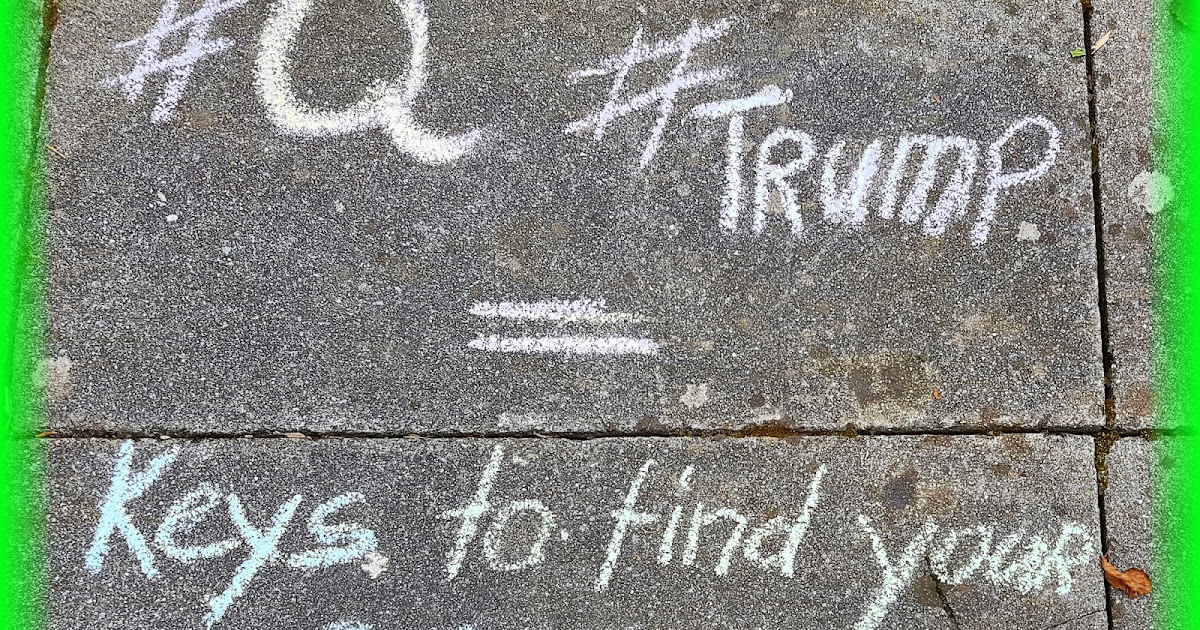 #Q #Trump
=
Keys to find your